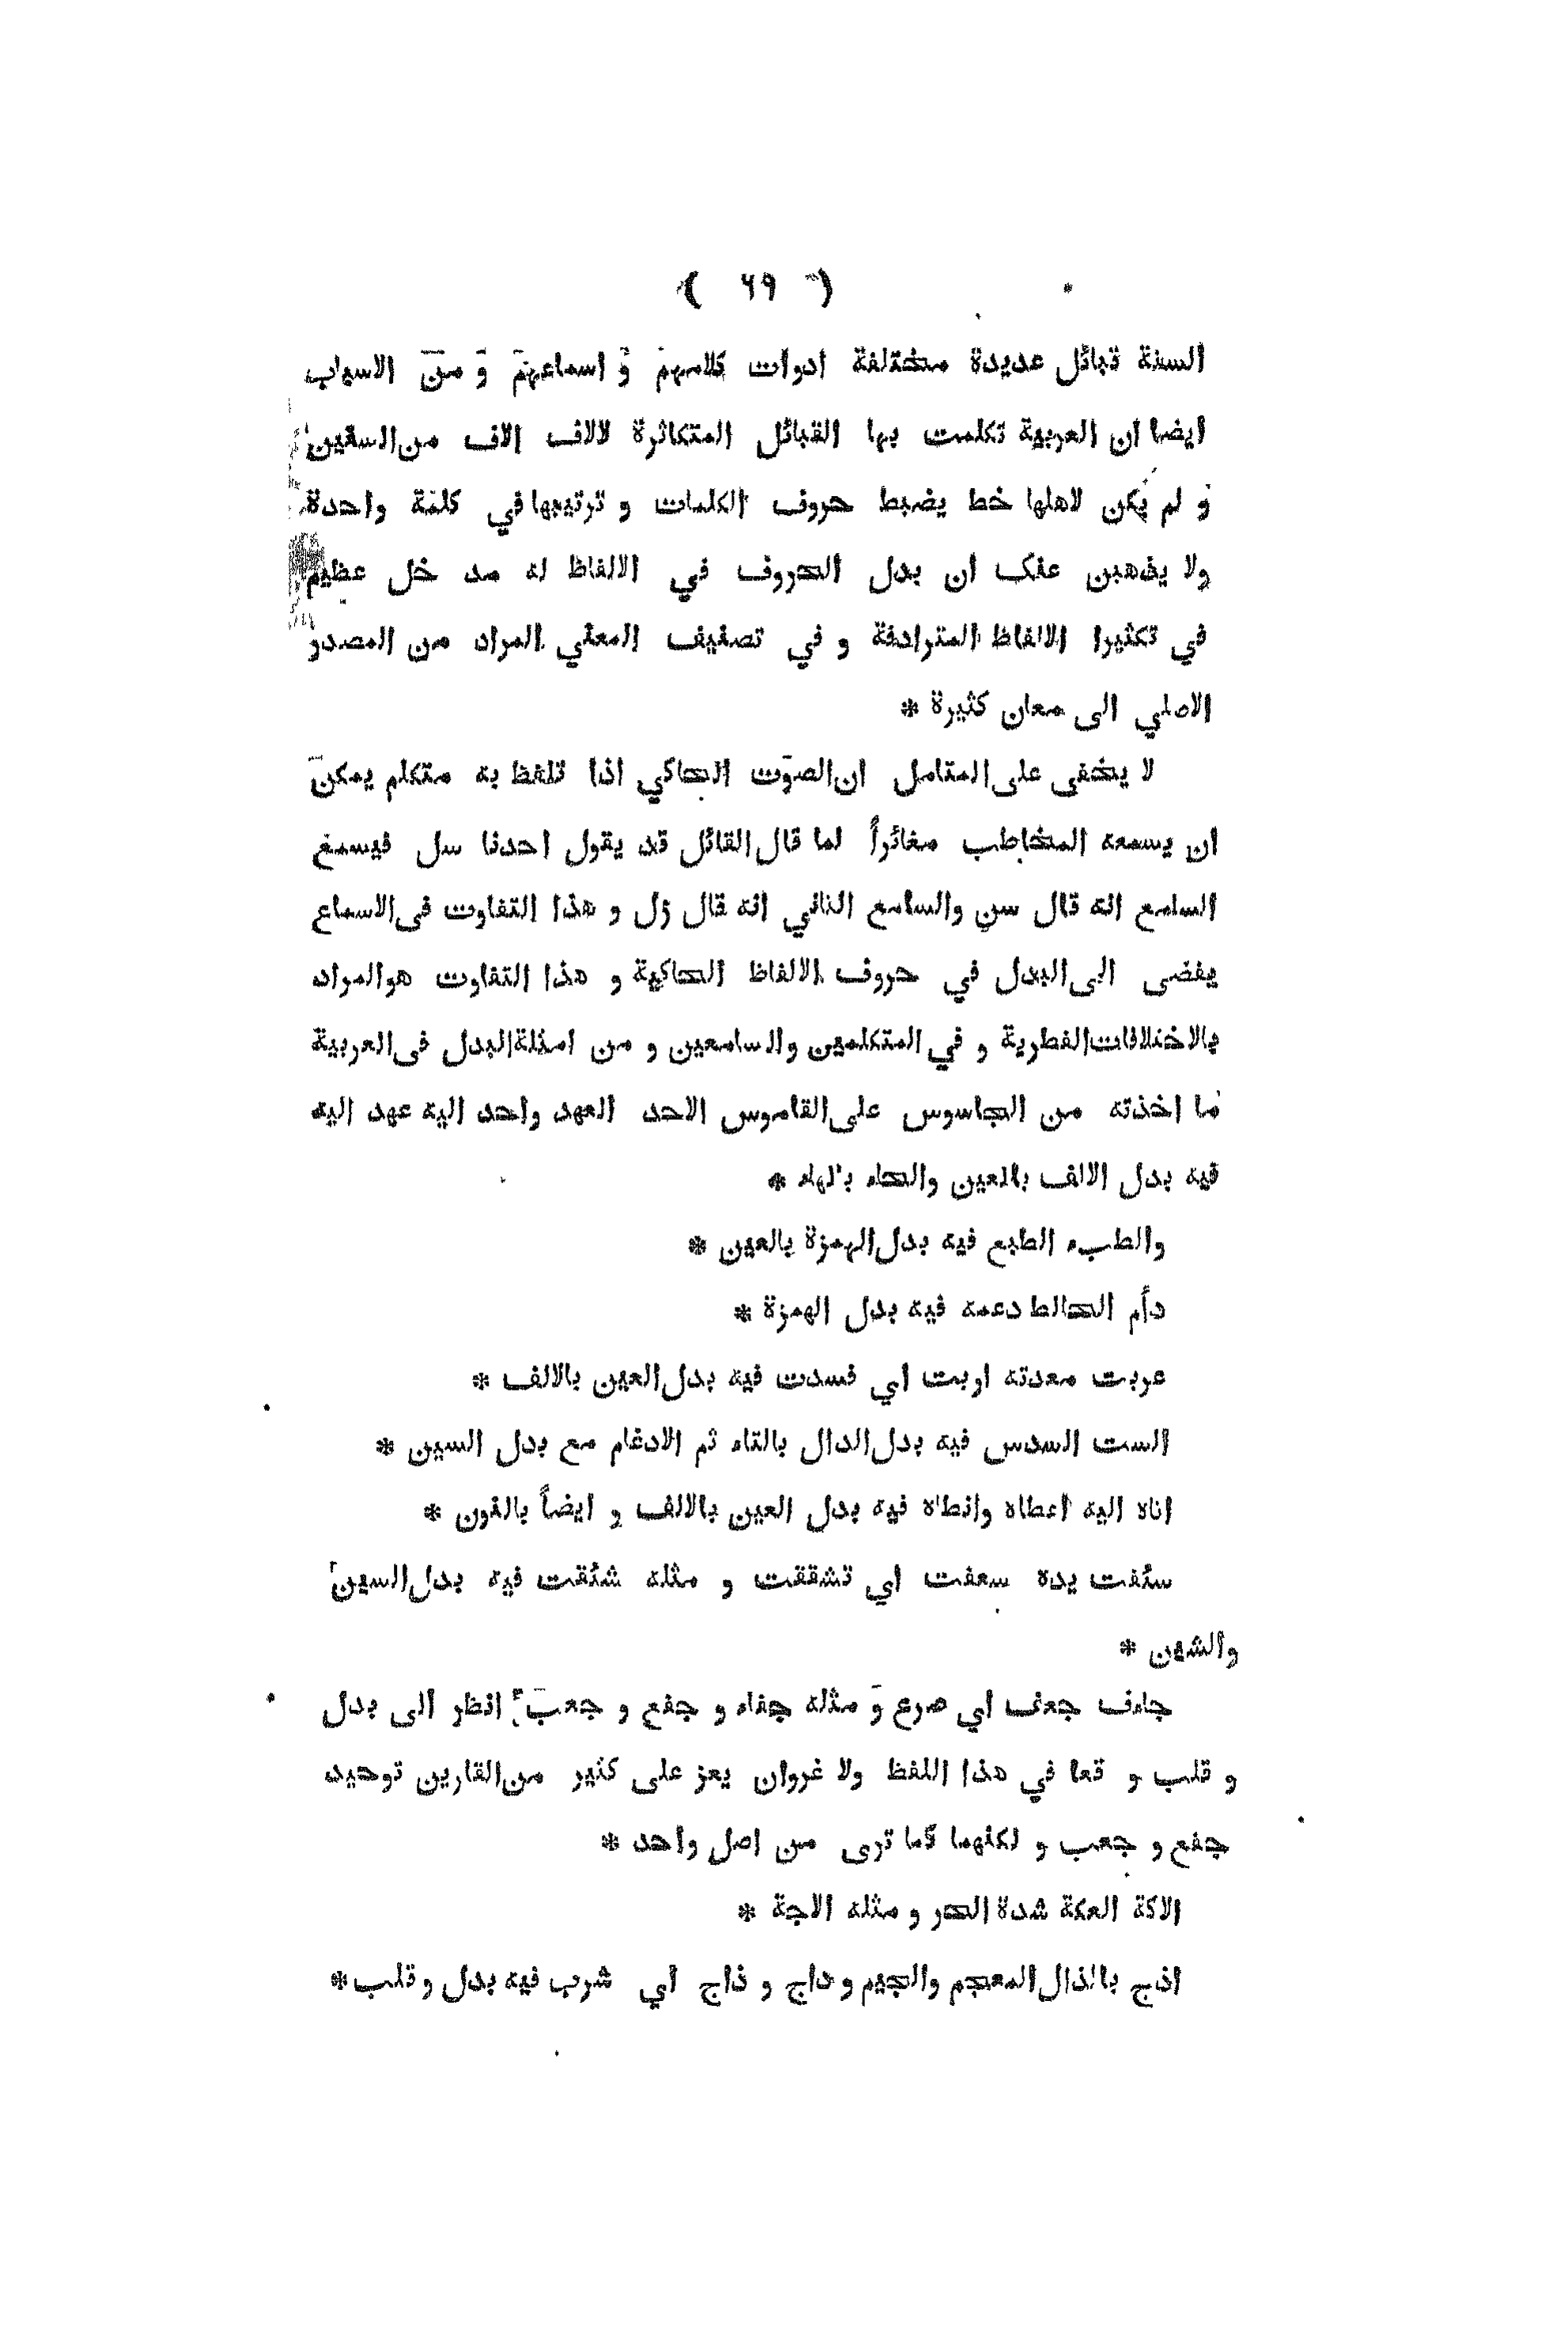 ( ٦٩ )
السنة قبائل عديدة مختلفة ادوات كلامهم و اسماعهم و من الاسباب
ايضا ان العربية تكلمت بها القبائل المتكاثرة لالاف الاف من السنين
و لم يكن لاهلها خط يضبط حروف الكلمات و ترتيبها في كلمة واحدة
ولا يذهبن عنك ان بدل الحروف في الالفاظ له مد خل عظيم
في تكثيرا الالفاظ المترادفة و في تصنيف المعني المراد من المصدر
الاصلي الى معان كثيرة *
لا يخفى على المتامل ان الصوت الحاكي اذا تلفظ به متكلم يمكن
ان يسمعه المخاطب مغائراً لما قال القائل قد يقول احدنا سل فيسمع
السامع انه قال سن والسامع الثاني انه قال زل و هذا التفاوت فى الاسماع
يفضى الى البدل في حروف الالفاظ الحاكية و هذا التفاوت هو المراد
بالاختلافات الفطرية و في المتكلمين والسامعين و من امثلة البدل فى العربية
ما اخذته من الجاسوس على القاموس الاحد العهد واحد اليه عهد اليه
فيه بدل الالف بالعين والحاء بالهاء *
والطبء الطبع فيه بدل الهمزة بالعين *
دأم الحائط دعمه فيه بدل الهمزة *
عربت معدته اربت اي فسدت فيه بدل العين بالالف *
الست السدس فيه بدل الدال بالتاء ثم الادغام مع بدل السين *
اناه اليه اعطاه وانطاه فيه بدل العين بالالف و ايضاً بالنون *
سئفت يده سعفت اي تشققت و مثله شئقت فيه بدل السين
والشين *
جاءف جعف اي صرع و مثله جفاء و جفع و جعب انظر الى بدل
و قلب و قعا في هذا اللفظ ولا غروان يعز على كثير من القارين توحيد
جفع و جعب و لكنهما كما ترى من اصل واحد *
الاكة العكة شدة الحر و مثله الاجة *
اذج بالذال المعجم والجيم و داج و ذاج اي شرب فيه بدل و قلب *